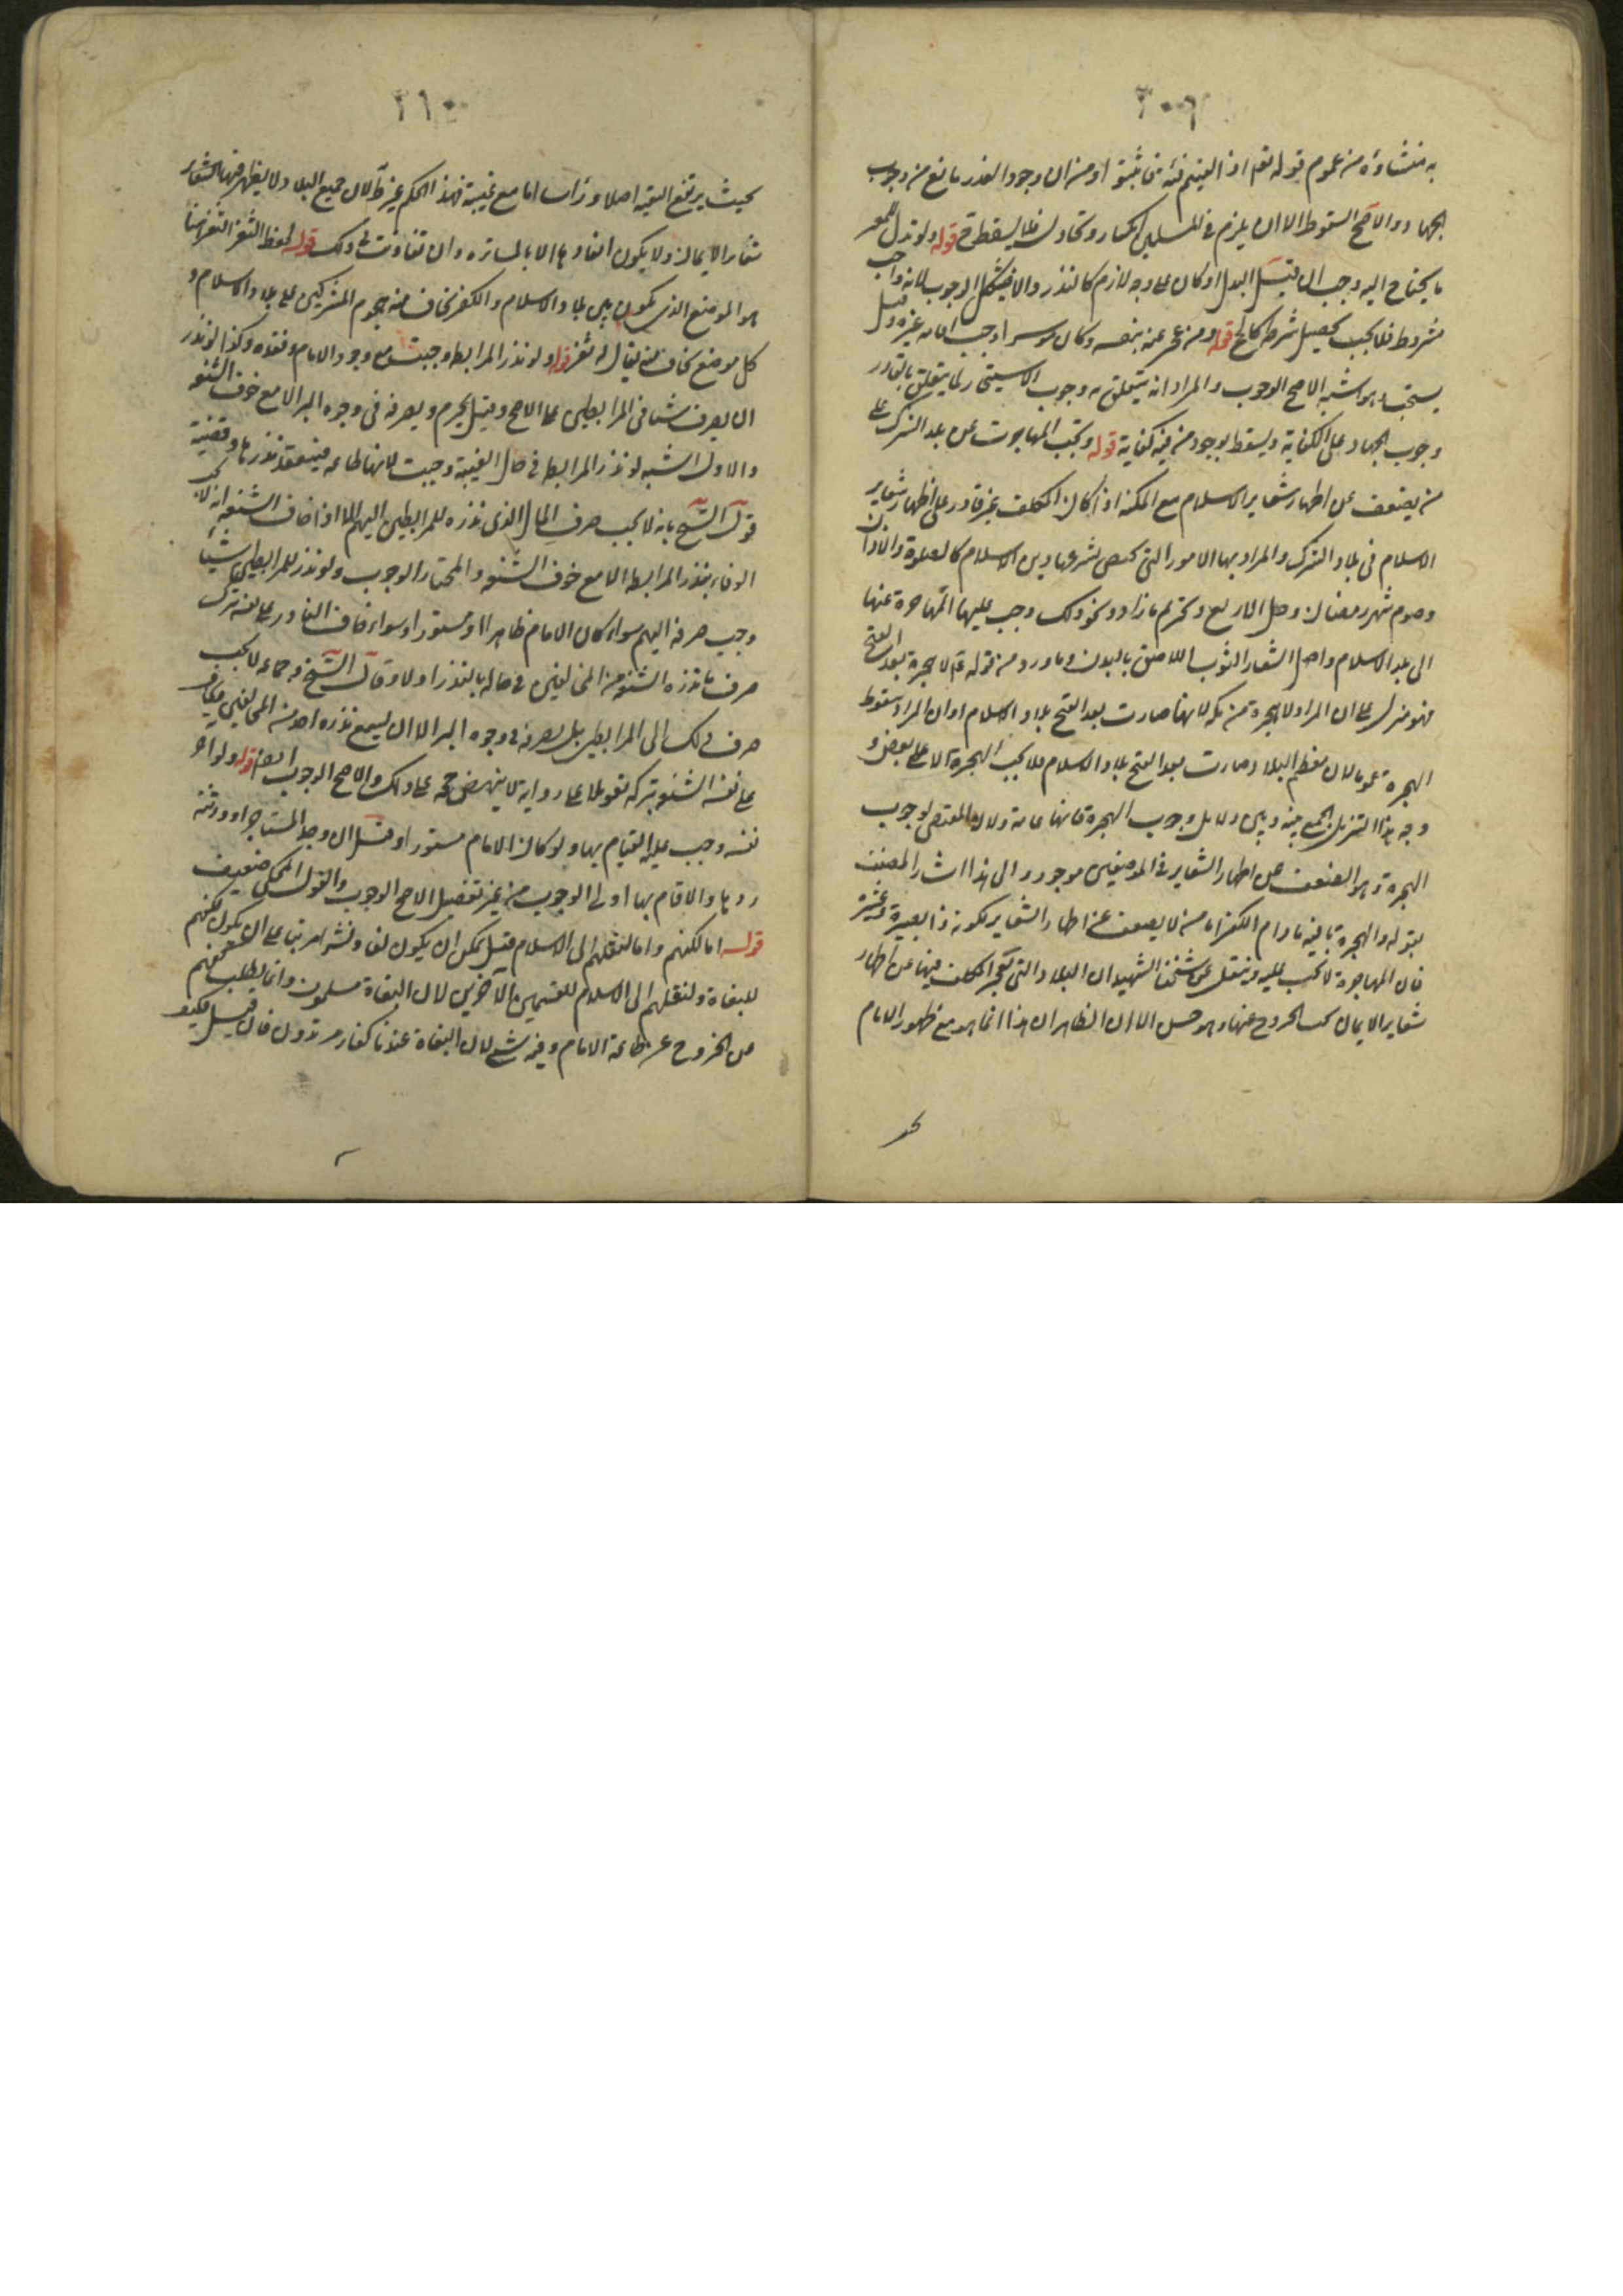 ٣٠٩
به منشاؤه من عموم قوله تعم اذا لقيتم فئة فاثبتوا ومن ان وجود العذر مانع من وجوب
الجهاد والاصح السقوط الا ان يلزم في المسلمين انكسار وتخاذل فلا يسقط ح قوله ولو بذل للمعسر
ما يحتاج اليه وجب ان قبل البذل او كان على وجه لازم كالنذر والا فيشكل الوجوب لانه واجب
مشروط فلا يجب تحصيل شرط كالحج قوله ومن عجز عنه بنفسه وكان موسرا وجب اقامة غيره وقيل
يستحب وهو اشبه الاصح الوجوب والمراد انه يتعلق به وجوب الاستيجار كما يتعلق بالقادر
وجوب الجهاد على الكفاية ويسقط بوجود من فيه كفاية قوله وتجب المهاجرة عن بلد الشرك على
من يضعف عن اظهار شعاير الاسلام مع المكنة اذا كان المكلف غير قادر على اظهار شعاير
الاسلام في بلاد الشرك والمراد بها الامور التي تختص بشرعها دين الاسلام كالصلوة والاذان
وصوم شهر رمضان وحل الاربع وتحريم ما زاد ونحو ذلك وجب عليها المهاجرة عنها
الى بلد الاسلام واصل الشعار الثوب اللاصق بالبدن وما ورد من قوله ع لا هجرة بعد الفتح
فهو منزل على ان المراد لا هجرة من مكه لانها صارت بعد الفتح بلاد الاسلام او ان المراد سقوط
الهجرة عموما لان معظم البلاد صارت بعد الفتح بلاد الاسلام فلا تجب الهجرة الا على بعض و
وجه هذا التنزيل الجمع بينه وبين دلايل وجوب الهجرة فانها عامة ولان المقتضي لوجوب
الهجرة وهو الضعف عن اظهار الشعاير في الموضعين موجود والى هذا اشار المصنف
بقوله والهجرة باقية ما دام الكفر اما من لا يضعف عن اظهار الشعاير لكونه ذا بصيرة وعشيرة
فان المهاجرة لا تجب عليه ونقل عن شيخنا الشهيد ان البلاد التي يعجز المكلف فيها عن اظهار
شعاير الايمان يجب الخروج عنها وهو حسن الا ان الظاهر ان هذا انما هو مع ظهور الامام
٣١٠
بحيث يرتفع التقية اصلا وراسا اما مع غيبته فهذا الحكم غير ظ لان جميع البلاد لا يظهر فيها شعار
شعار الايمان ولا يكون انفاذها الا بالمساترة وان تفاوتت في ذلك قوله لحفظ الثغر الثغر هنا
هو الموضع الذي يكون بين بلاد الاسلام والكفر يخاف منه هجوم المشركين على بلاد الاسلام و
كل موضع يخاف منه يقال له ثغر قوله ولو نذر المرابطة وجبت مع وجود الامام وفقده وكذا لو نذر
ان يصرف شيئا في المرابطين على الاصح وقيل يحرم ويصرفه في وجوه البر الا مع خوف الشنعة
والاول اشبه لو نذر المرابطة في حال الغيبة وجبت لانها طاعة فينعقد نذرها وقضية
قول الشيخ بانه لا يجب صرف المال الذي نذره للمرابطين اليهم الا اذا خاف الشنعة انه لا يجب
الوفاء بنذر المرابطة الا مع خوف الشنعة والمختار الوجوب ولو نذر للمرابطين شيئا
وجب صرفه اليهم سواء كان الامام ظاهرا او مستورا وسواء خاف الناذر على نفسه بترك
صرف ما نذره الشنعة من المخالفين في حاله بالنذر اولا وقال الشيخ وجماعة لا يجب
صرف ذلك الى المرابطين بل يصرفه في وجوه البر الا ان يسمع نذره احد من المخالفين فيخاف
على نفسه الشنعة بتركه تعويلا على رواية لا ينهض حجة على ذلك والاصح الوجوب ايضا قوله ولو اجر
نفسه وجب عليه القيام بها ولو كان الامام مستورا وقيل ان وجد المستاجر او ورثته
ردها والا قام بها اولى الوجوب من غير تفصيل الاصح الوجوب والقول المحكي ضعيف
قوله اما لكفهم واما لنقلهم الى الاسلام قيل يمكن ان يكون لفا ونشرا مرتبا على ان يكون لكفهم
للبغاة ولنقلهم الى الاسلام للقسمين الآخرين لان البغاة مسلمون وانما يطلب كفهم
عن الخروج عن طاعة الامام وفيه شيء لان البغاة عندنا كفار مرتدون فان قيل فكيف